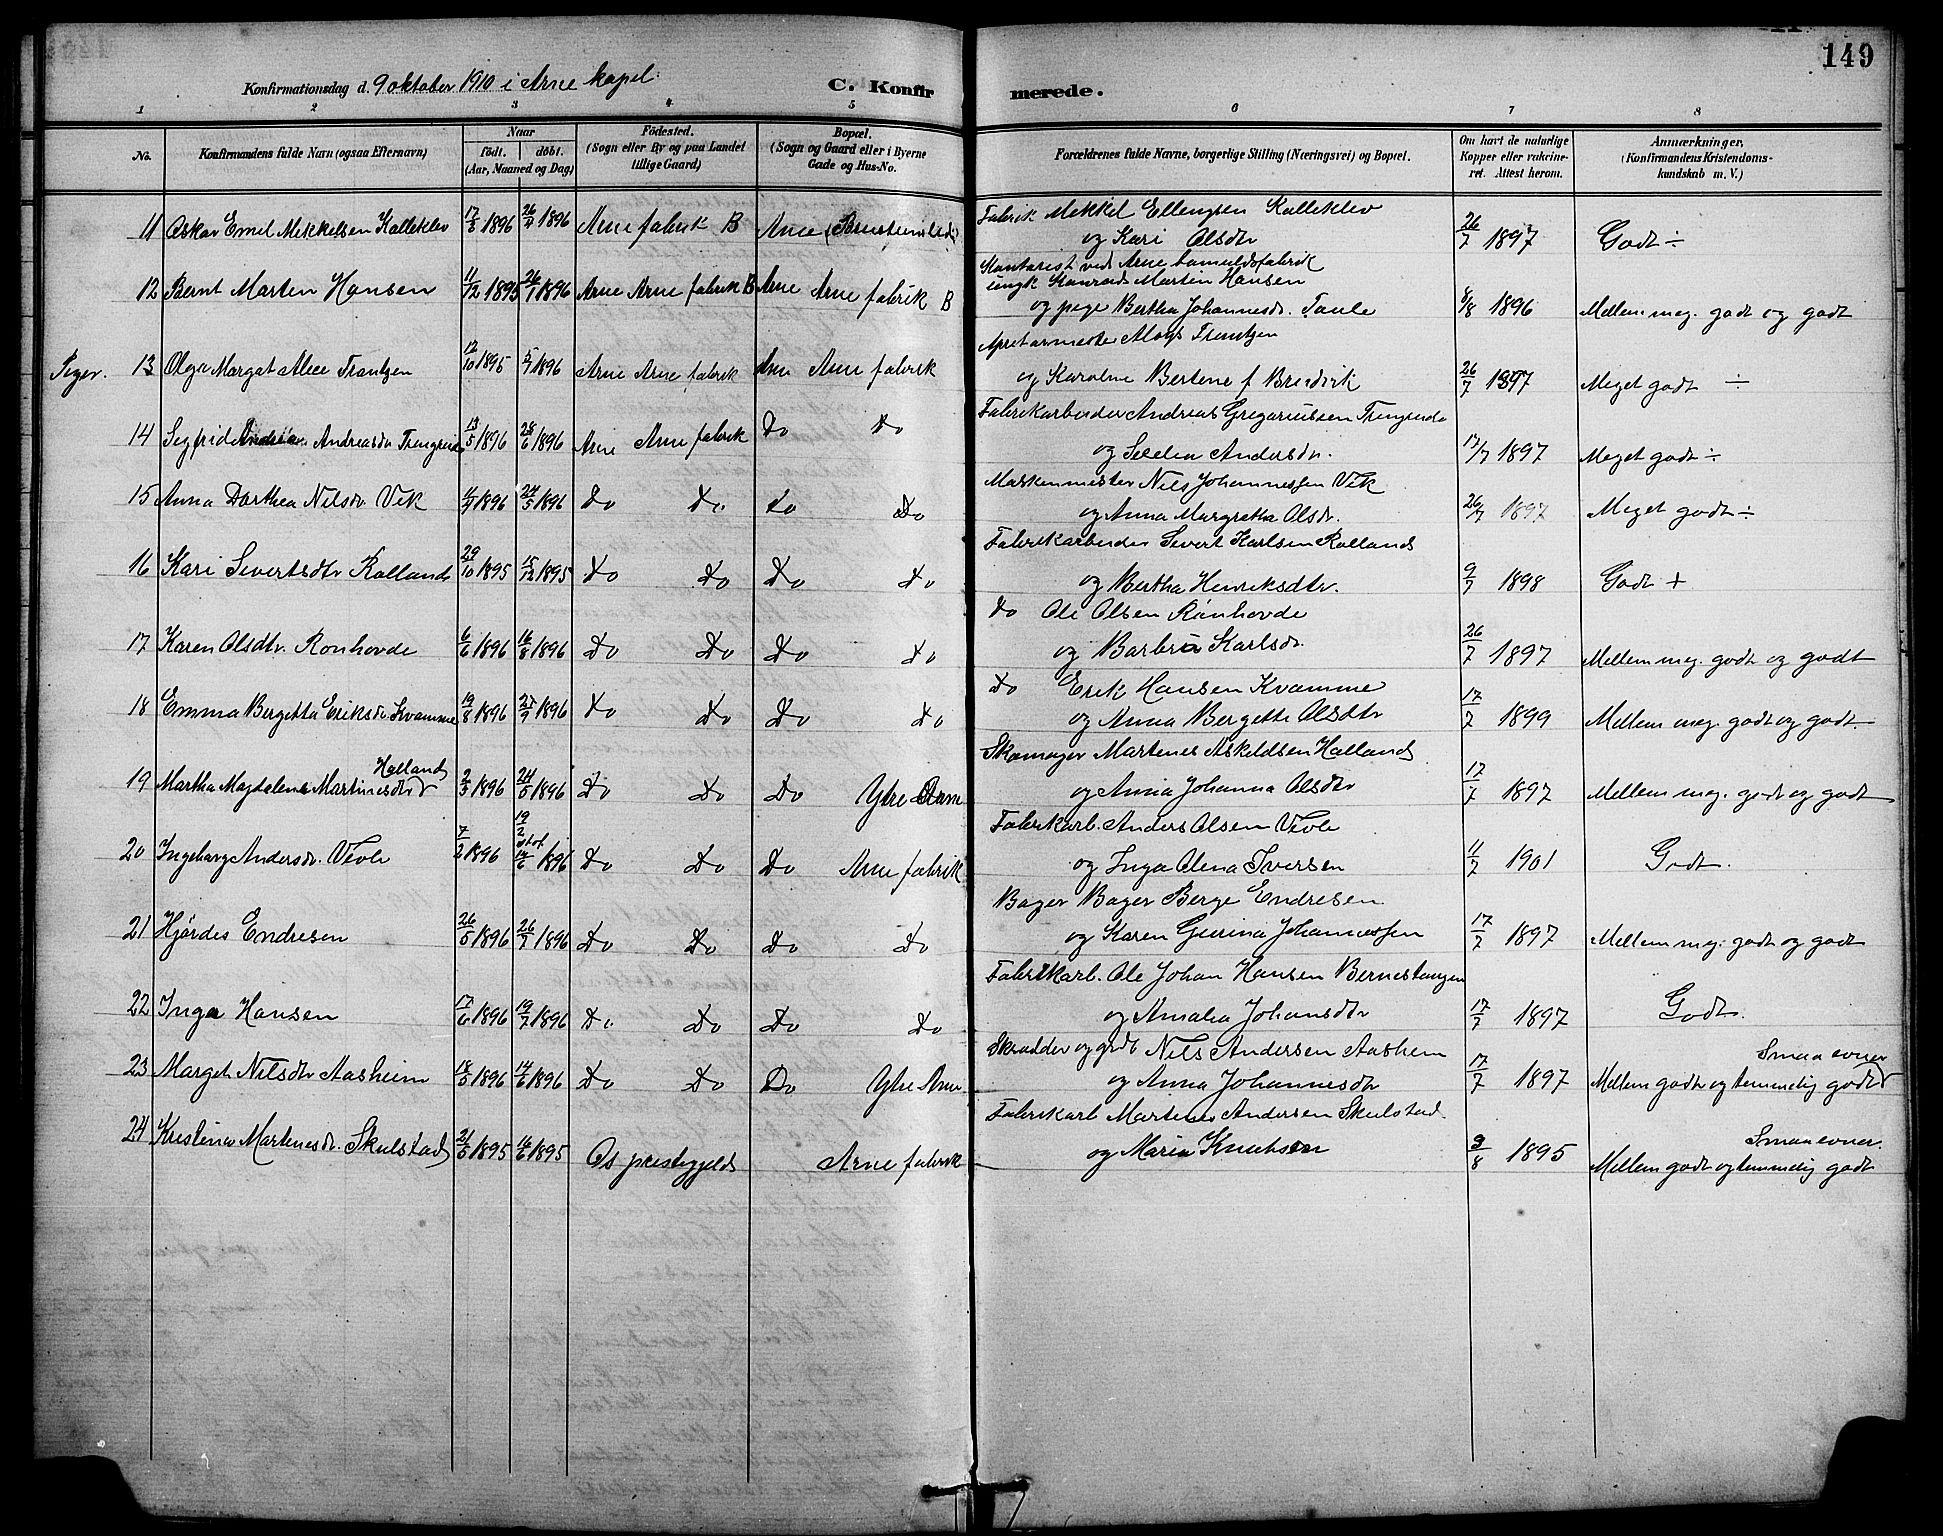 149
Konfirmationsdag d. 9 oktober 1910 i Arne kapel.
C. Konfirmerede.
1 2 3 4 5 6 7 8
No. Konfirmandens fulde Navn (ogsaa Efternavn) Naar født. døbt. (Aar, Maaned og Dag) Fødested. (Sogn eller By og paa Landet tillige Gaard) Bopæl. (Sogn og Gaard eller i Byerne Gade og Hus-No. Forældrenes fulde Navne, borgerlige Stilling (Næringsvei) og Bopæl. Om havt de naturlige Kopper eller vakcineret. Attest herom. Anmærkninger, (Konfirmandens Kristendomskundskab m. V.)
Fabrik Mekkel Ellengsen Kalleklev
11 Oskar Emil Mikkelsen Kalleklev 17/3 1896 26/4 1896 Arne fabrik B Arne og Kari Olsdtr 26/7 1897 Godt ÷
Kontorist ved Arne bomuldsfabrik
ungk Konrad Martin Hansen
12 Bernt Marten Hansen 11/12 1895 26/1 1896 Arne Arne fabrik B Arne Arne fabrik B og pige Bertha Johannesdr. Taule 8/8 1896 Mellem meg. godt og godt
Apreturmester Aloys Trentzen
Piger. 13 Olga Margat Alice Trantzen 12/10 1895 5/1 1896 Arne Arne fabrik Arne Arne fabrik og Karoline Bertene f Breidvik 26/7 1897 Meget godt ÷
Fabrikarbeider Andreas Gregoriussen Trengereide
14 Sigfrid Andrea Andreasdr Trengereid 13/5 1896 28/6 1896 Arne Arne fabrik Do Do og Andersdr. 17/7 1897 Meget godt ÷
Maskinmester Nils Johannessen Vik
15 Anna Dorthea Nilsdr Vik 1896 24/5 1896 Do Do. Do Do og Anna Margretha Olsdr. 26/7 1897 Meget godt ÷
Fabrikarbeider Severt Karlsen Rollands
16 Kari Severtsdtr Rolland 29/10 1895 15/12 1895 Do Do Do Do og Bertha Henriksdtr. 9/7 1898 Godt +
Do Ole Olsen Rönhovde
17 Karen Olsdtr. Ronhovde 6/6 1896 16/8 1896 Do Do Do Do og Barbra Karlsdr. 26/7 1897 Mellem meg. godt og godt
Do Erik Hansen Kvamme
18 Emma Bergetta Eriksdr Kvamme 19/8 1896 27/9 1896 Do Do Do Do og Anna Bergette Olsdtr 17/7 1899 Mellem meg. godt og godt
Skomager Martenes Askeldsen Hallands
19 Martha Magdalena Martinesdtr Holland 2/3 1896 24/5 1896 Do Do Do Ytre Arne og Anna Johanna Olsdtr 17/7 1897 Mellem meg. godt og godt
Fabrikarb. Anders Olsen Vevle
20 Ingeborg Andersdr. Vevle 7/2 1896 19/2 stad. 14/6 1896 Do Do Do Arne fabrik og Inga Olena Iversen 11/7 1901 Godt.
Bager Bager Berge Endresen
21 Hjørdes Endresen 26/5 1896 26/7 1896 Do Do Do Do og Karen Gurina Johannessen 17/7 1897 Mellem meg. godt og godt
Fabrikkarb. Ole Johan Hansen Bernestangen
22 Inga Hansen 17/6 1896 19/7 1896 Do Do Do Do og Amalia Johansdtr 17/7 1897 Godt.
Skrædder og grdb Nils Andersen Aashem
23 Marget Nilsdtr Aasheim 18/5 1896 14/6 1896 Do Do Do Ytre Arne og Anna Johannesdtr 17/7 1897 Mellem godt og temmelig godt Smaa evner
Fabrikarb Martenes Andersen Skulstad
24 Kristina Martenesdr. Skulstad 21/5 1895 16/6 1895 Os prestegjeld Arne fabrik og Maria Knutsen 3/8 1895 Mellem godt og temmelig godt Smaa evner.